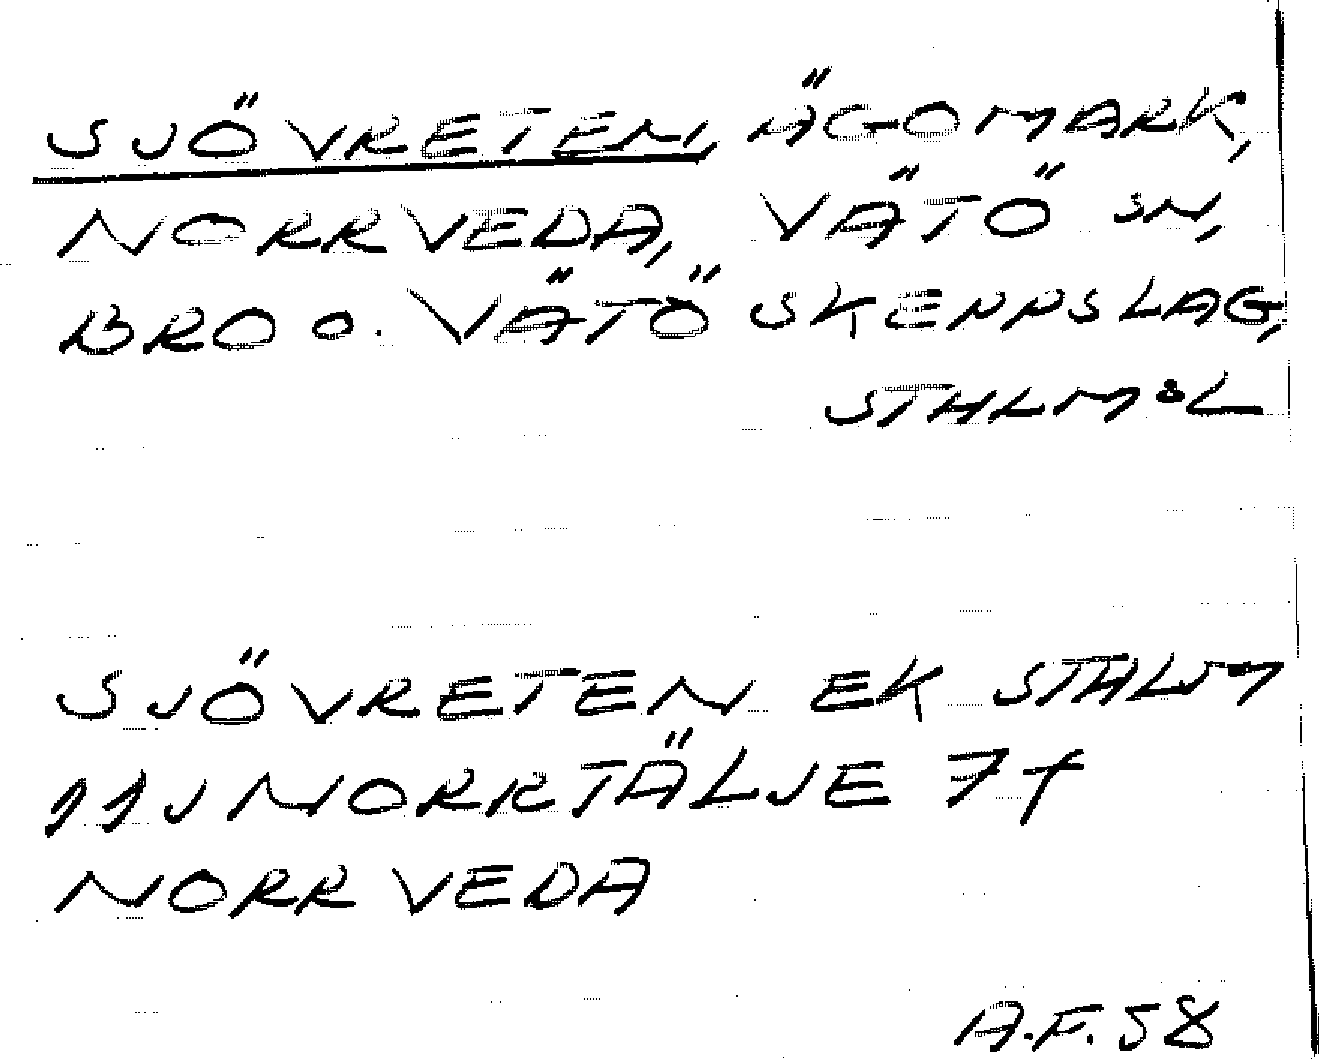 SJÖVRETEN, ÄGOMARK,
NORRVEDA, VÄTÖ SN,
BRO O. VÄTÖ SKEPPSLAG,
STHLMSL
SJÖVRETEN EK STHLM
11J NORRTÄLJE 7f
NORRVEDA
A.F. 58